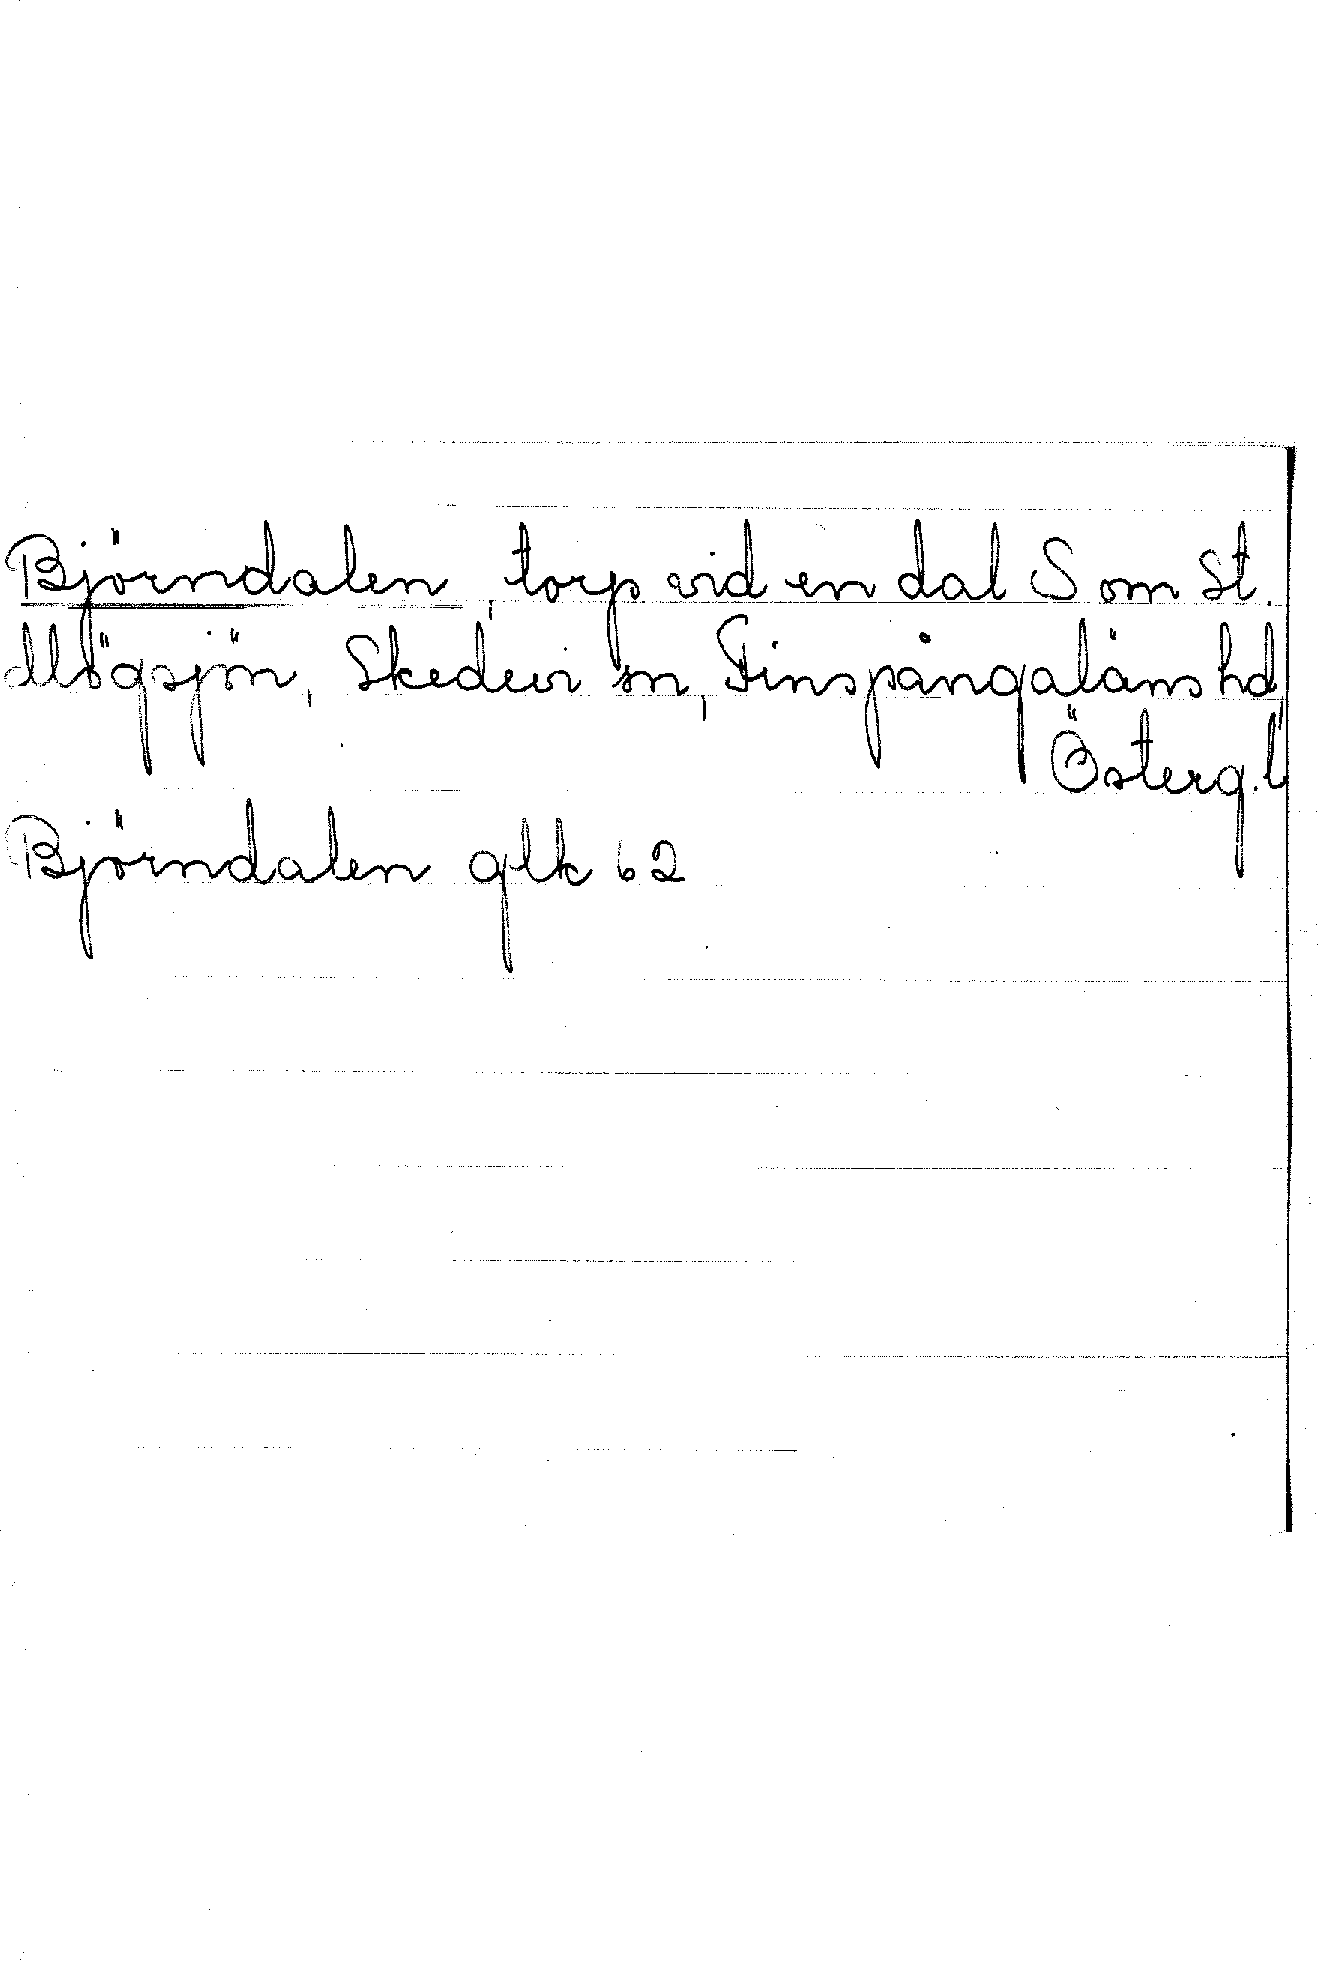 Björndalen, torp vid en dal S om St.
Mögsjön, Skedevi sn, Finspångaläns hd
Österg.l
Björndalen glk 62